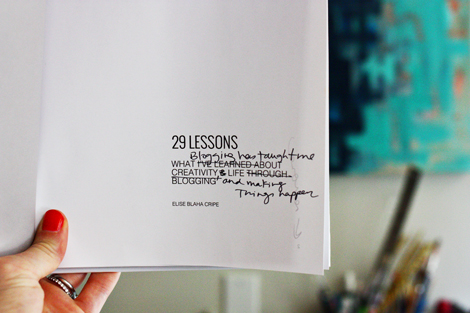 29 LESSONS
Blogging has taught me
WHAT I'VE LEARNED ABOUT
CREATIVITY & LIFE THROUGH
BLOGGING and making
Things happen
ELISE BLAHA CRIPE